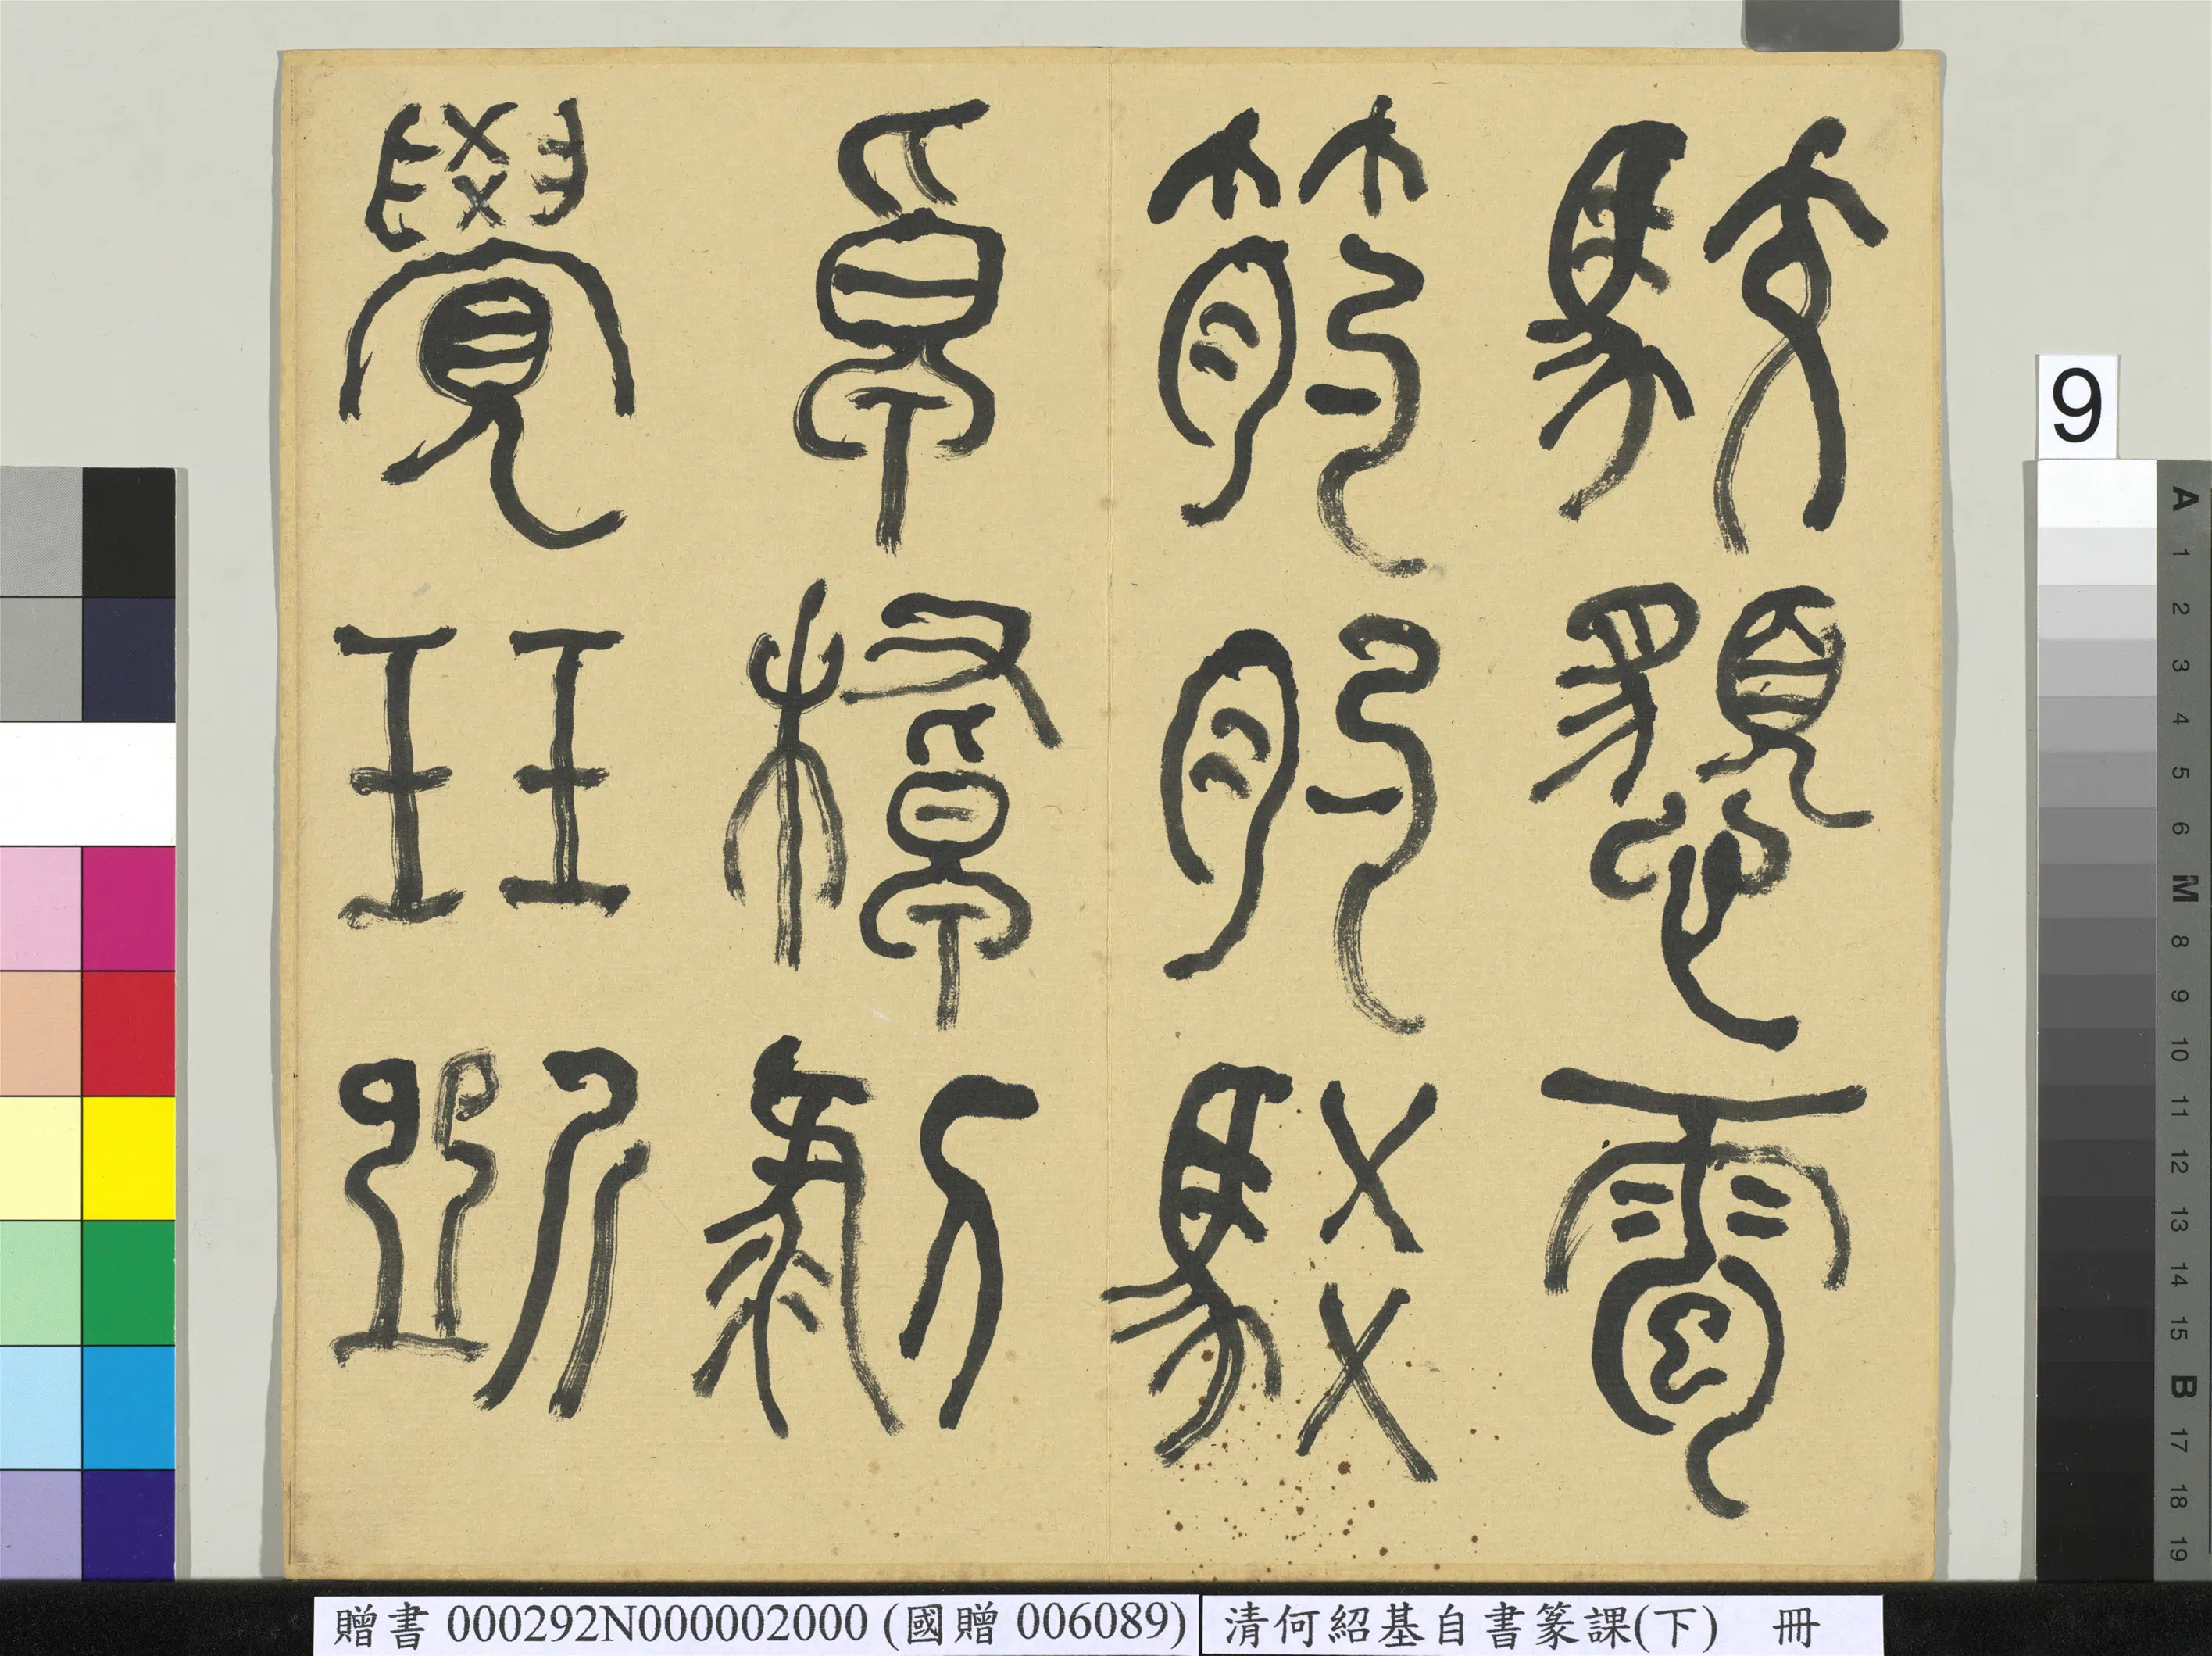 駮雹
肑駁
覺玨斲
9
A 1 2 3 4 5 6 M 8 9 10 11 12 13 14 15 B 17 18 19
贈書 000292N000002000 (國贈 006089)
清何紹基自書篆課(下) 冊